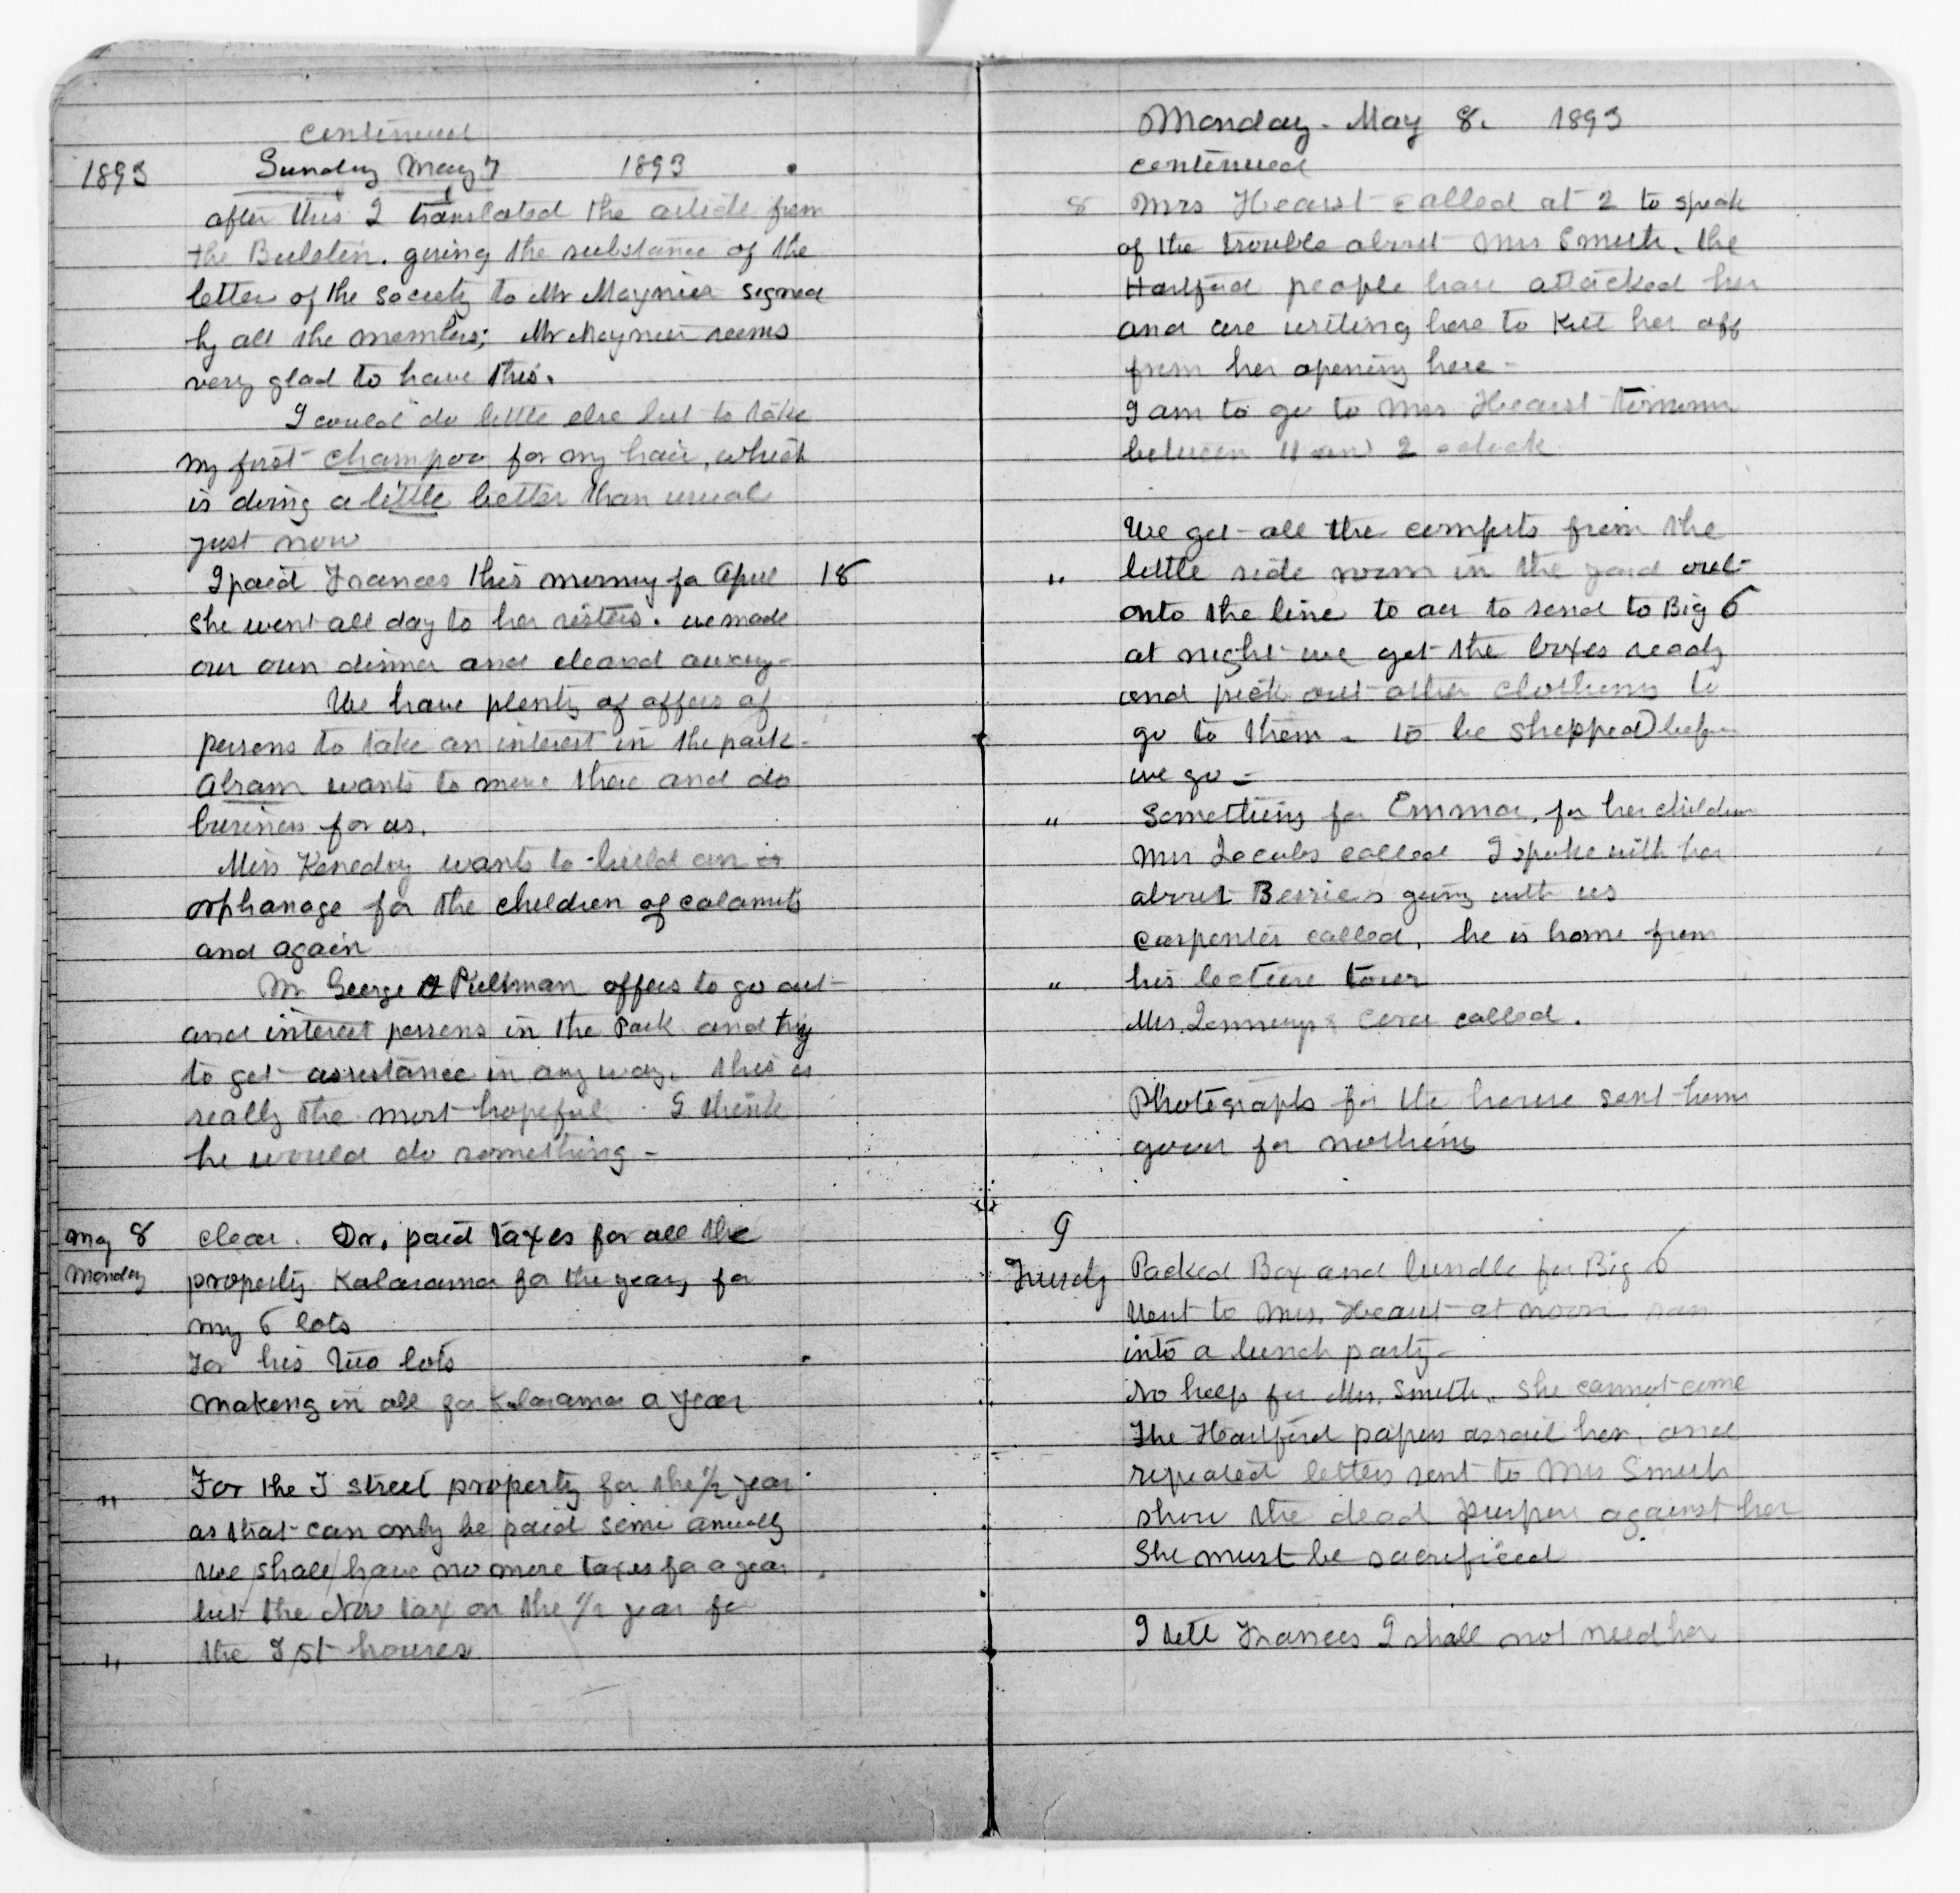 continued
1893 Sunday May 7 1893
after this I translated the article from
the Buletin. giving the substance of the
letter of the Society to Mr Moynier signed
by all the members; Mr Moynier seems
very glad to have this.
I could do little else but to take
my first champoo for my hair, which
is doing a little better than usual
just now
I paid Frances this morning for April 18
she went all day to her sisters. we made
our own dinner and cleard away-
We have plenty of offers of
persons to take an interest in the park-
Abram wants to move there and do
business for us.
Miss Kenedy wants to build an or
orphanage for the children of calamity
and again
Mr George Pullman offers to go out
and interest persons in the Park and try
to get assistance in any way. this is
really the most hopeful. I think
he would do something-
May 8 clear. Dr. paid taxes for all the
Monday property Kalarama for the year, for
my 6 lots
For his two lots
making in all for Kalarama a year
" For the I street property for the 1/2 year
as that can only be paid semi anually
we shall have no more taxes for a year
but the Nov tax on the 1/2 year for
" the I st houses
Monday - May 8. 1893
continued
8 Mrs Hearst called at 2 to speak
of the trouble about Mrs Smith. the
Hartford people have attacked her
and are writing here to kill her off
from her opening here-
I am to go to Mrs Hearst tomorrow
between 11 and 2 oclock
We get all the comforts from the
" little side room in the yard out
onto the line to air to send to Big 6
at night we get the boxes ready
and pick out other clothing to
go to them - to be shipped before
we go -
" Something for Emma, for her children
Mrs Jacobs called I spoke with her
about Bessies going with us
Carpenter called, he is home from
" his lecture tour
Mrs. & Cora called.
Photographs for the house sent home
good for nothing
9
Tuesdy Packed Box and bundle for Big 6
Went to Mrs. Hearst at noon ran
into a lunch party-
No help for Mrs. Smith. She cannot come
The Hartford papers assail her. and
repeated letters sent to Mrs Smith
show the dead purpose against her
She must be sacrificed
I tell Frances I shall not need her